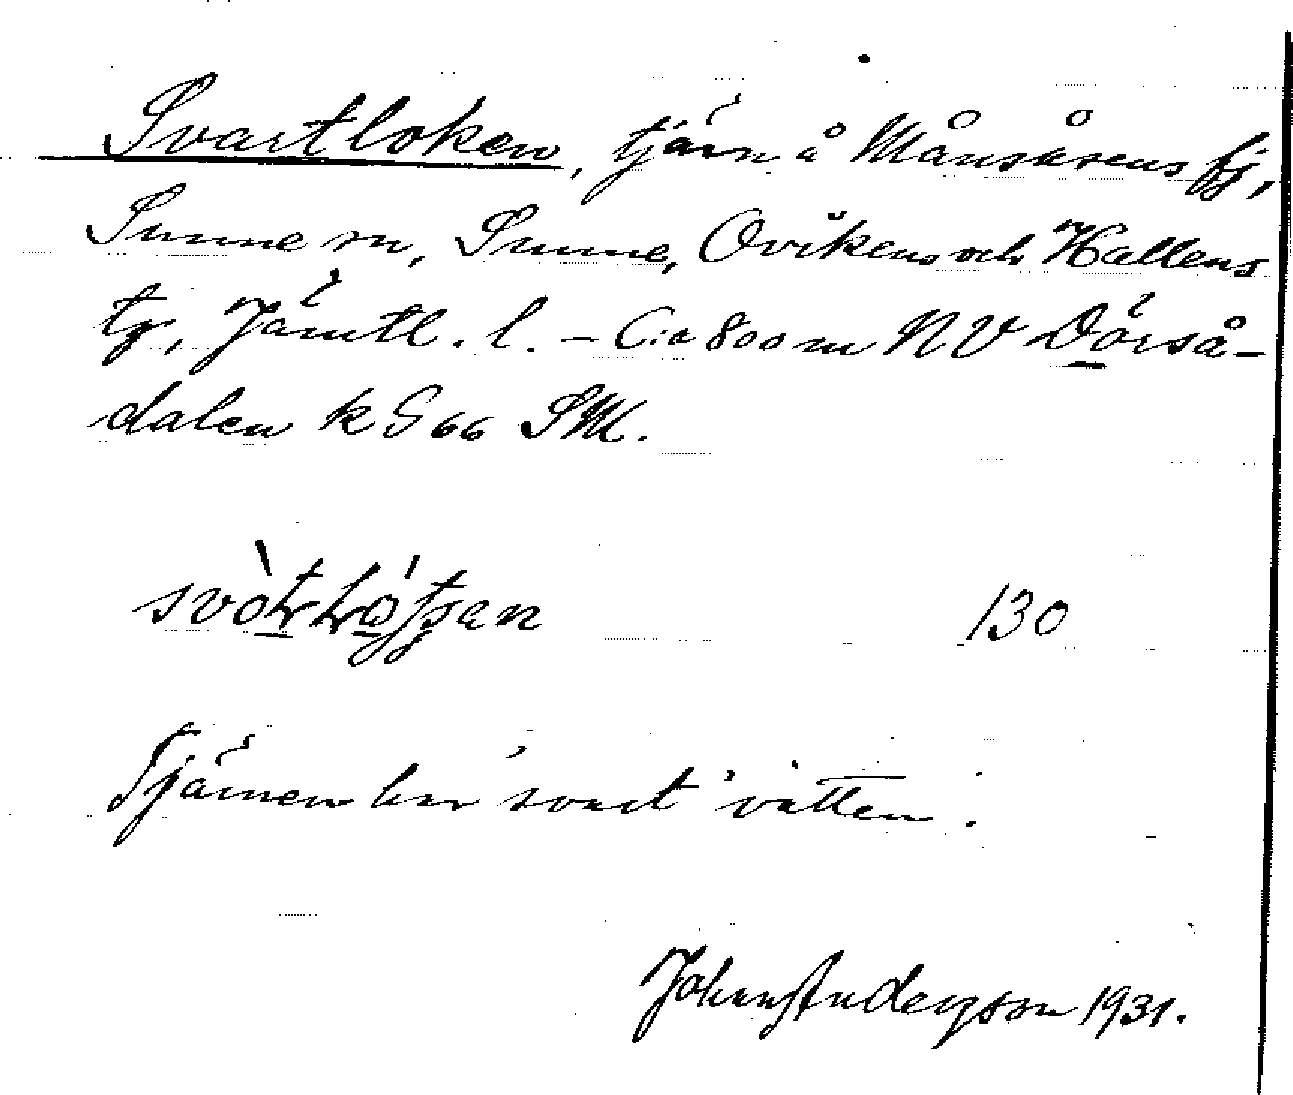 Svartloken, tjärn å Månsåsens fj,
Sunne sn, Sunne, Ovikens och Hallens
tg, Jämtl. l. – C:a 800 m NV Dörså-
dalen k G 66 SM.
130
Tjärnen har svart vatten.
Johan Andersson 1931.